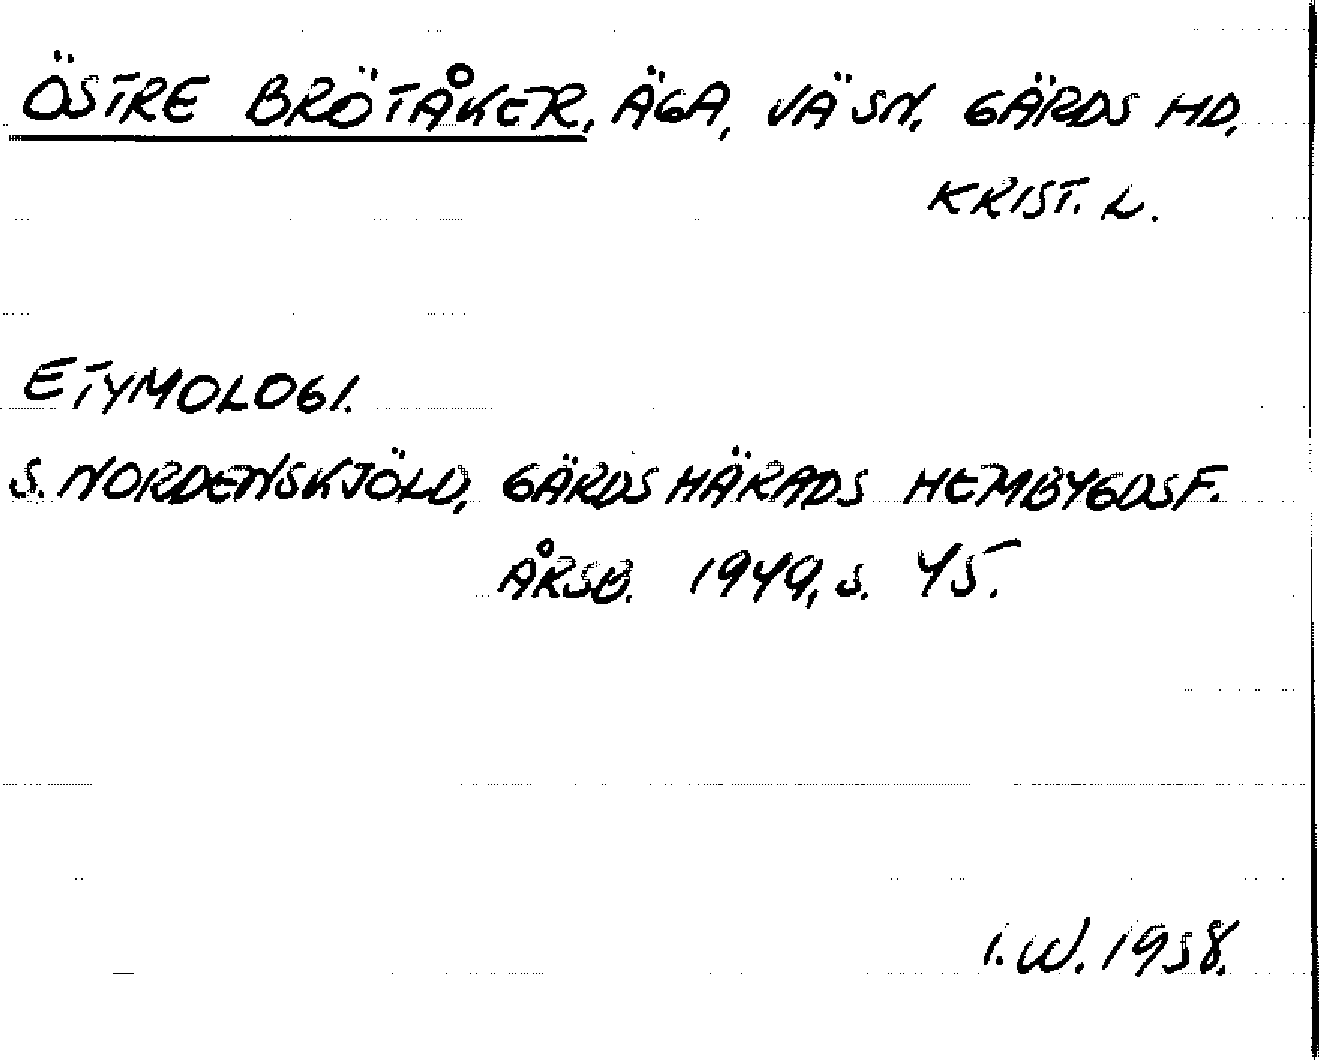 ÖSTRE BRÖTÅKER, ÄGA, VÄ SN, GÄRDS HD,
KRIST. L.
ETYMOLOGI.
S. NORDENSKJÖLD, GÄRDS HÄRADS HEMBYGDSF.
ÅRSB. 1949, S. 45.
I. W. 1958.